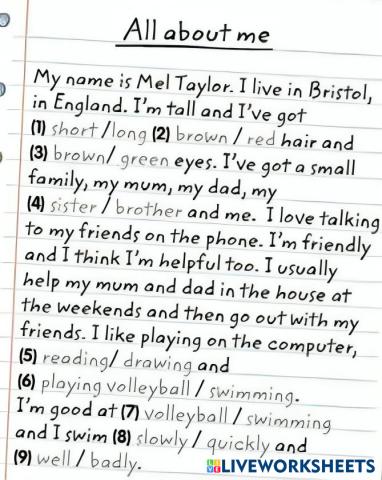 All about me
My name is Mel Taylor. I live in Bristol,
in England. I'm tall and I've got
(1) short /long (2) brown / red hair and
(3) brown/ green eyes. I've got a small
family, my mum, my dad, my
(4) sister / brother and me. I love talking
to my friends on the phone. I'm friendly
and I think I'm helpful too. I usually
help my mum and dad in the house at
the weekends and then go out with my
friends. I like playing on the computer,
(5) reading/ drawing and
(6) playing volleyball / swimming.
I'm good at (7) volleyball / swimming
and I swim (8) slowly / quickly and
(9) well / badly.
LIVEWORKSHEETS